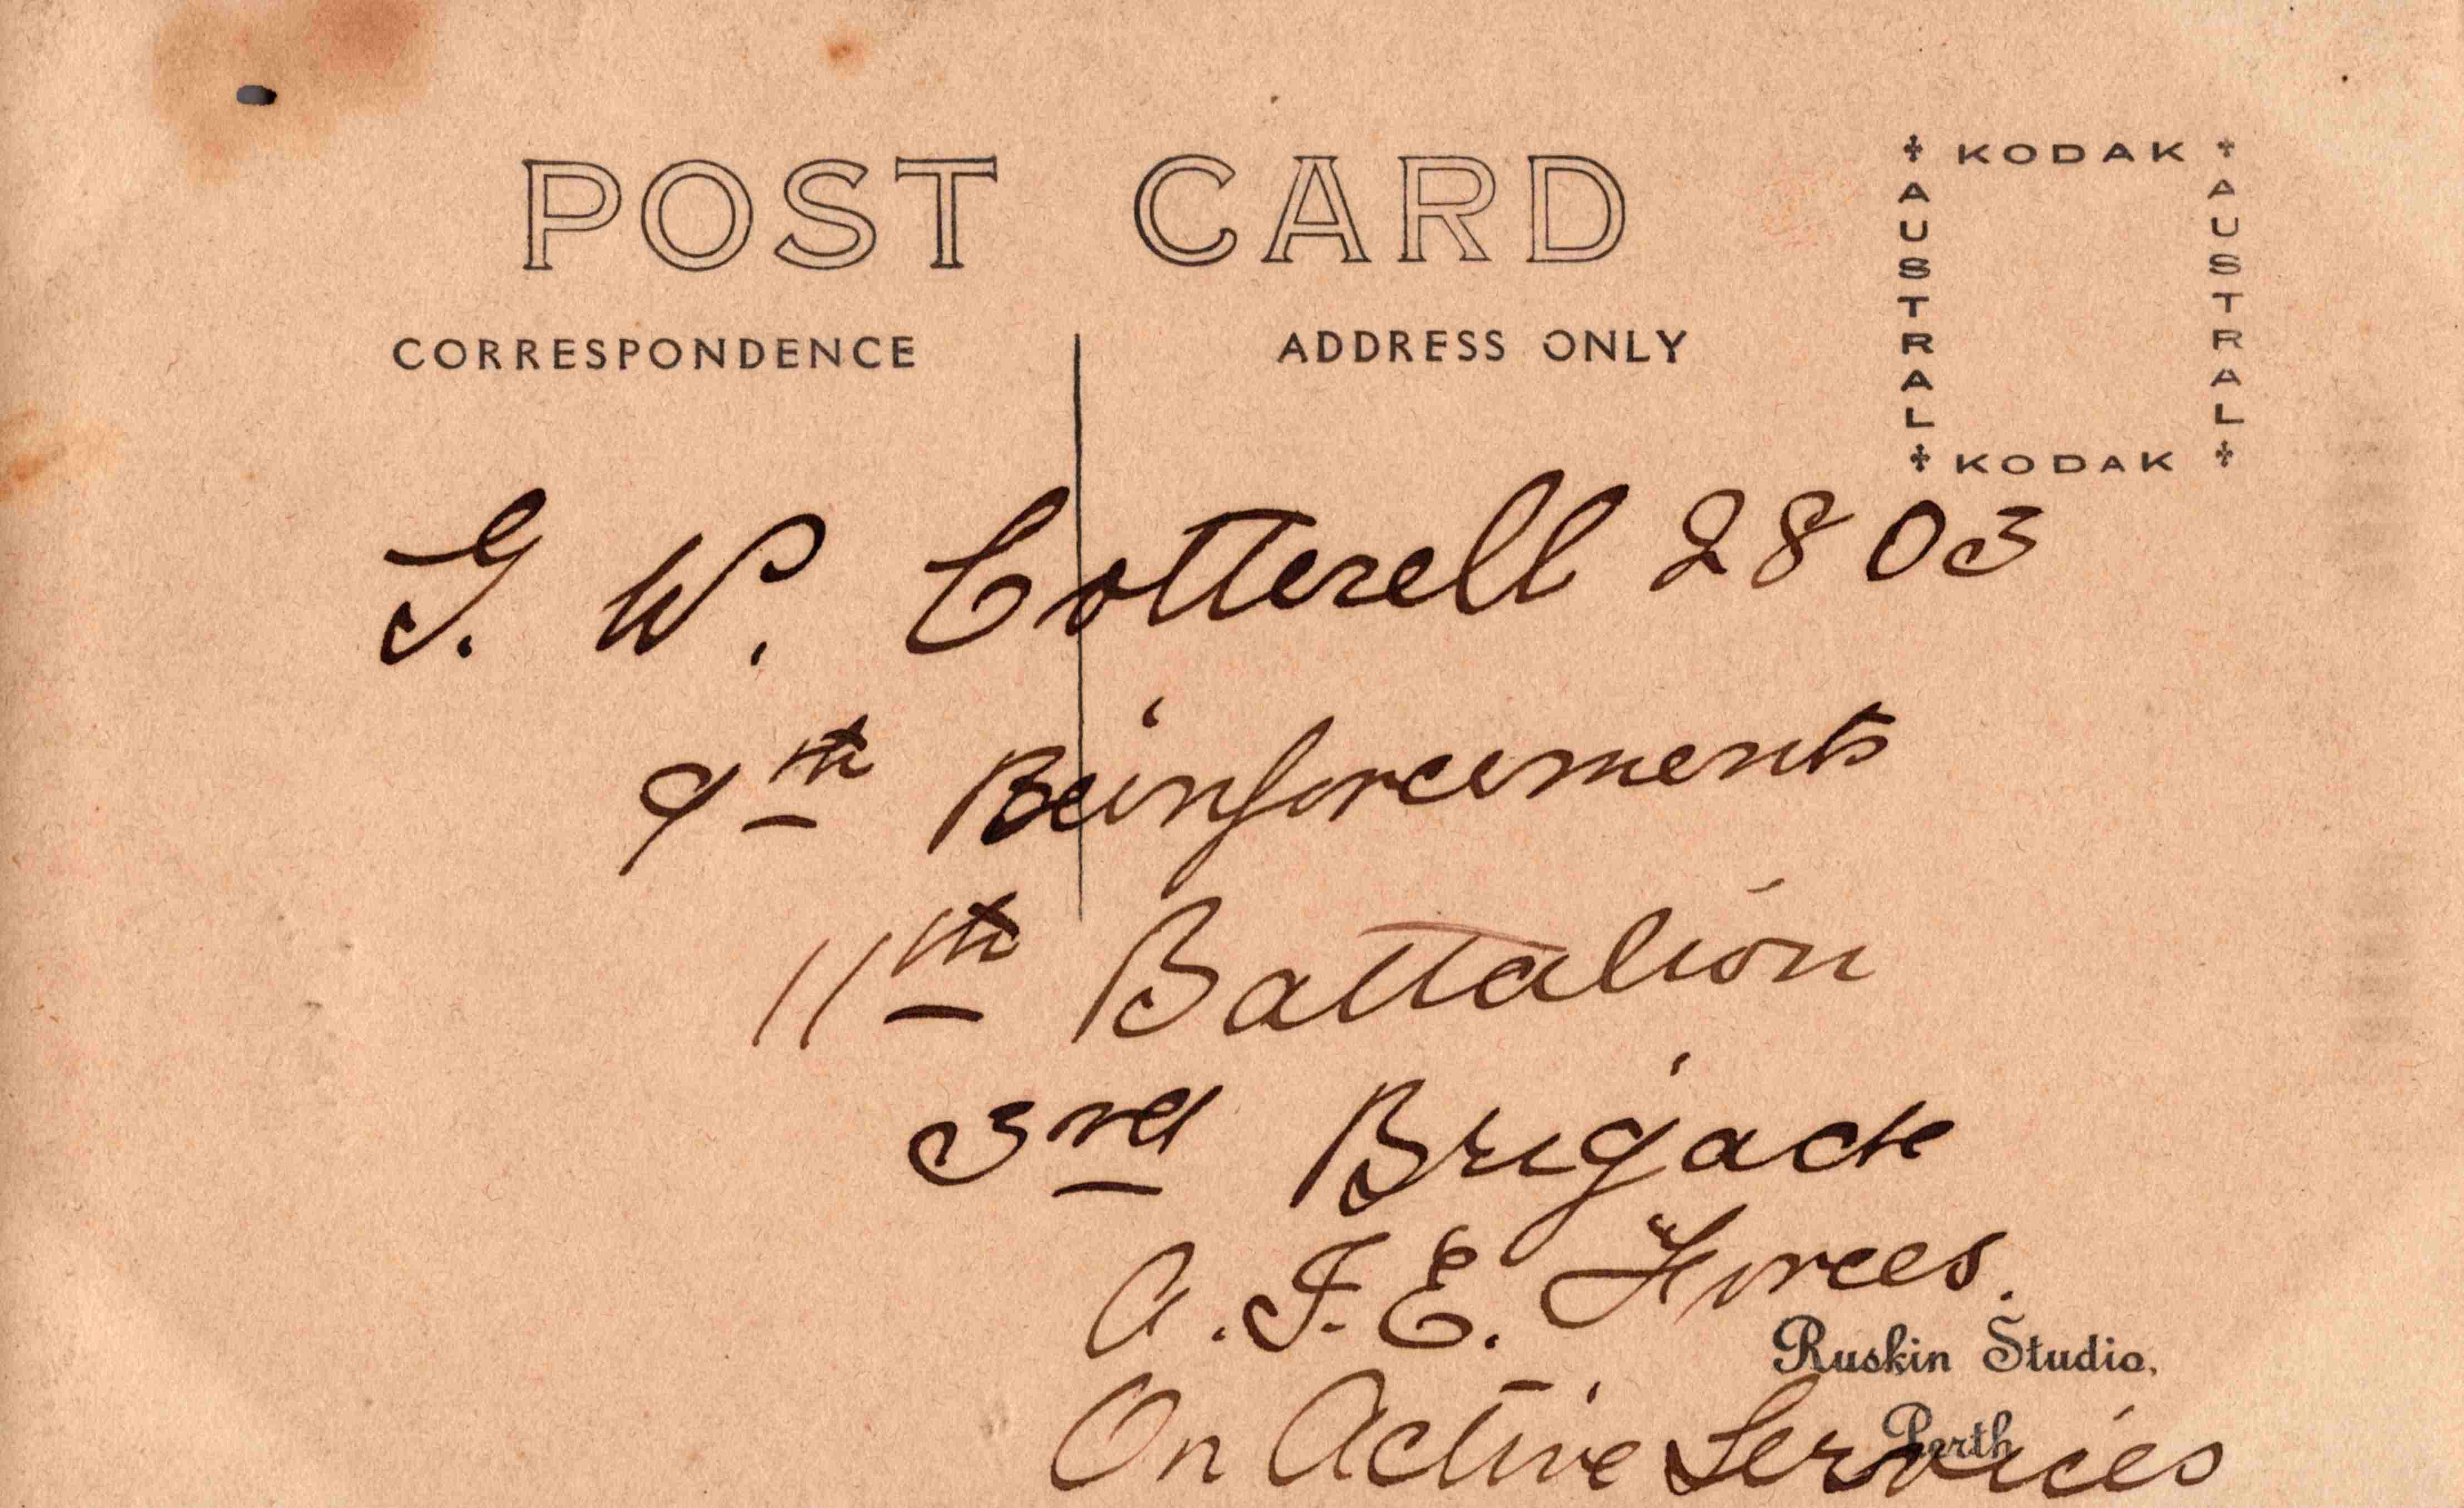 POST CARD
KODAK
AUSTRAL
AUSTRAL
KODAK
CORRESPONDENCE
ADDRESS ONLY
G. W. Cotterell 2803
9th Reinforcements
11th Battalion
3rd Brigade
A.I.E. Forces.
Ruskin Studio,
Perth
On Active Services